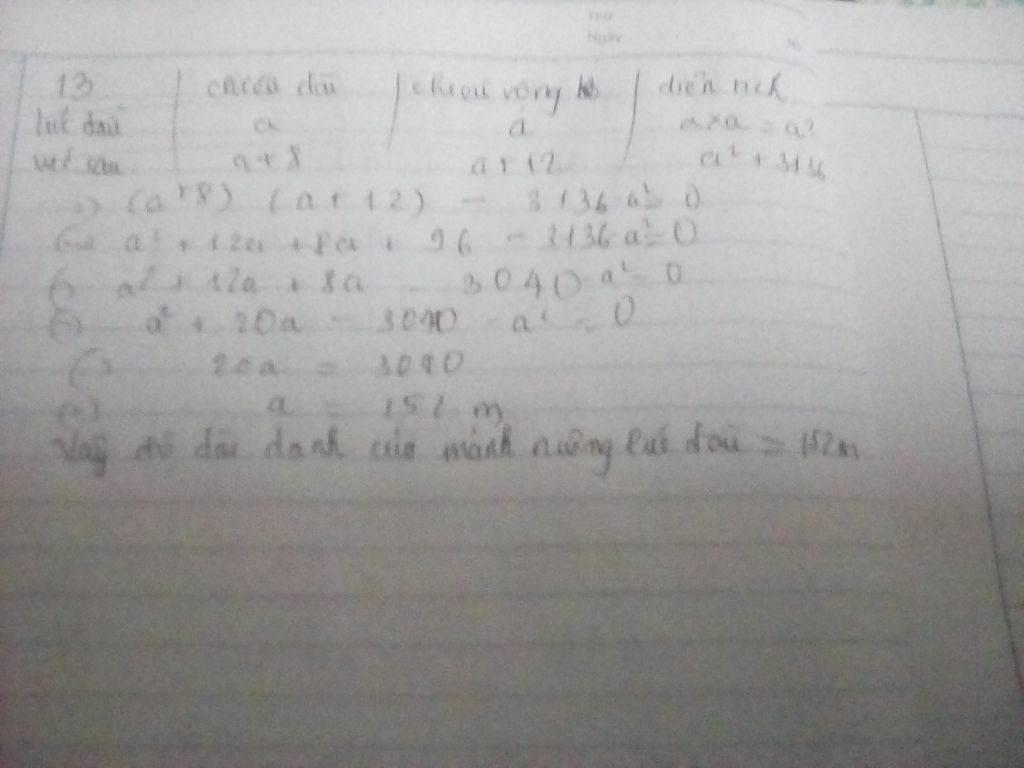 Thứ
Ngày
No
13 | chiều dài | chiều rộng | diện tích
lúc đầu a a a×a = a²
lúc sau a+8 a+12 a² + 3136
=> (a+8) (a+12) - 3136-a²=0
(=) a² + 12a + 8a + 96 - 3136-a²=0
(=) a² + 12a + 8a - 3040-a²=0
(=) a² + 20a - 3040 -a² = 0
(=) 20a = 3040
(=) a = 152 m
Vậy độ dài của mảnh lúc đầu = 152m